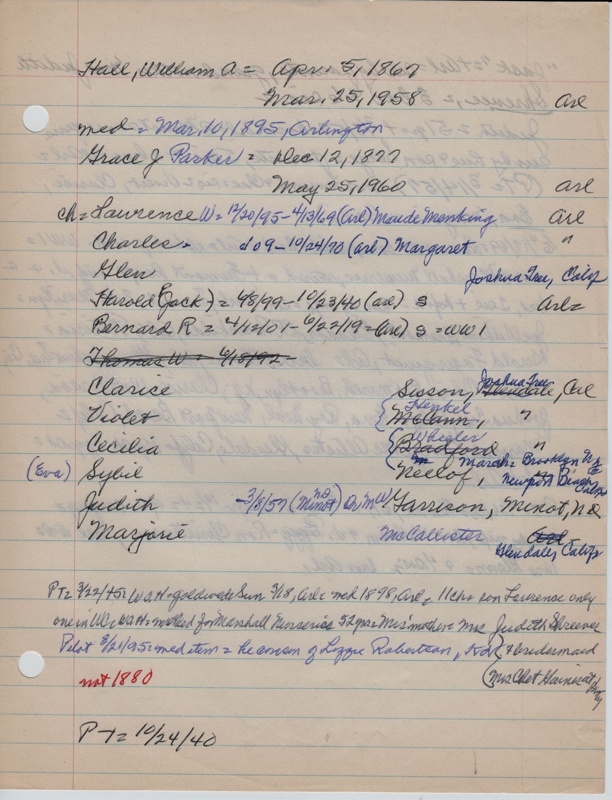 Hall, William A = Apr. 5, 1867
Mar. 25, 1958 Arl
med = Mar, 10, 1895, Arlington
Grace J Parker = Dec 12, 1877
May 25, 1960 Arl
ch = Lawrence W = 12/20/95 - 4/13/69 (Arl) Maude Menking Arl
Charles = d 09 - 10/24/70 (Arl) Margaret "
Glen Joshua Tree, Calif
Harold (Jack) = 4/8/99 - 10/23/40 (Arl) S Arl =
Bernard R = 4/12/01 - 6/22/19 = (Arl) S = WW 1
Thomas W = 6/18/92
Clarice Sisson, Glendale, Joshua Tree, Cal
Violet McCann, Henkel "
Cecilia Bradford Wheeler "
(Eva) Sybil Neelof, March = Brooklyn N.Y. Newport Beach, Calif
Judith - 3/5/57 (Minot ND) Garrison, Minot, N.D.
Marjorie McCallister Arl Glendale, Calif
PT = 3/22/45 = W A H = golden wed Sun 3/18, Arl = med 1898, Arl, 11 ch = son Lawrence only
one in WC, WAH worked for Marshall Nurseries 32 yrs = Mrs' mother = Mrs Judith Shreever
Pilot 3/21/95 = med item = he a son of Lizzie Robertson, & bridesmaid
(Mrs Chet Haines at
not 1880
P T = 10/24/40